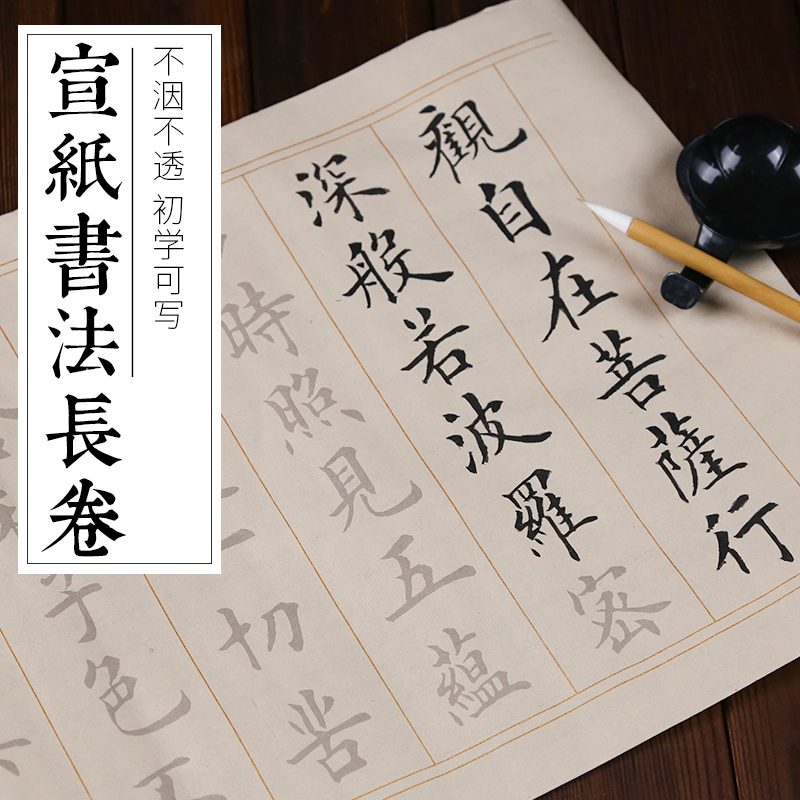 宣紙書法長卷
不洇不透 初学可写
觀自在菩薩行
深般若波羅密
時照見五蘊
切苦
子色不